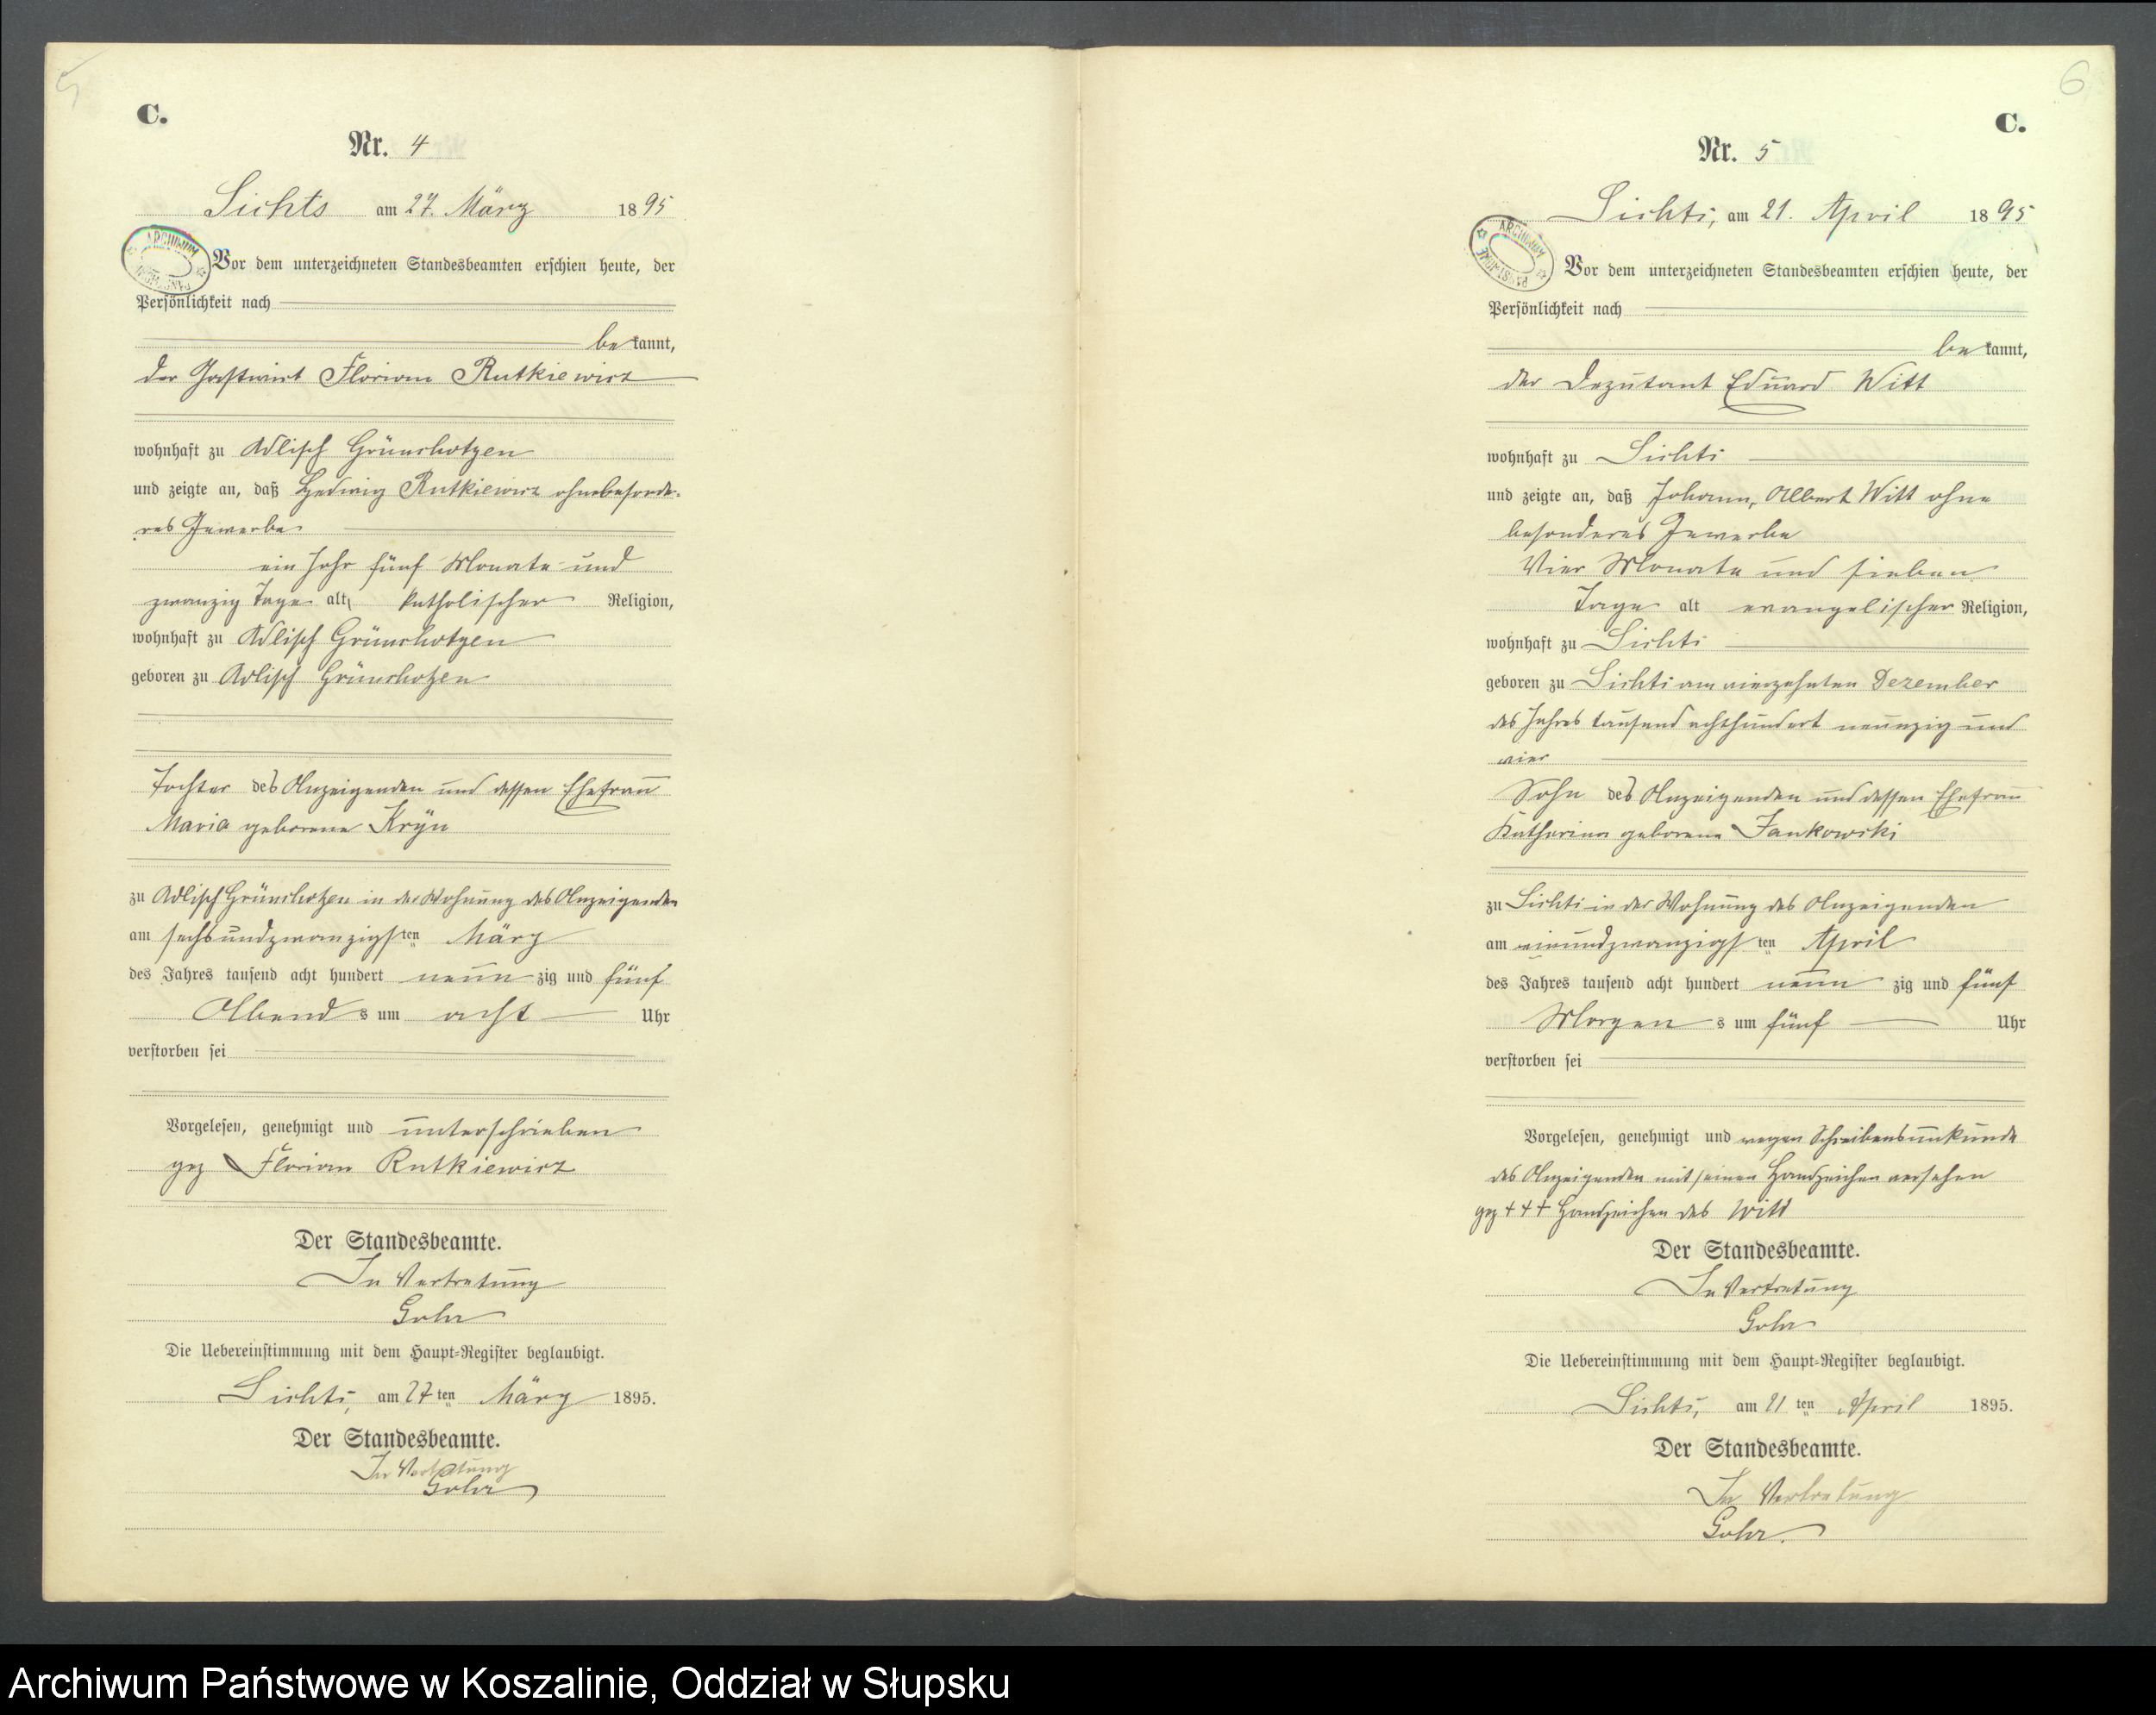 5
C.
Nr. 4
Lichts am 27. März 1895
ARCHIWUM
Vor dem unterzeichneten Standesbeamten erschien heute, der
Persönlichkeit nach
bekannt,
der Gastwirt Florian Rutkiewicz
wohnhaft zu Adlisch Grünchotzen
und zeigte an, daß Hedwig Rutkiewicz ohne besonde-
res Gewerbe
ein Jahr fünf Monate und
zwanzig Tage alt, katholischer Religion,
wohnhaft zu Adlisch Grünchotzen
geboren zu Adlisch Grünchotzen
Tochter des Anzeigenden und dessen Ehefrau
Maria geborene Kryn
zu Adlisch Grünchotzen in der Wohnung des Anzeigenden
am sechsundzwanzigsten März
des Jahres tausend acht hundert neunzig und fünf
Abends um acht Uhr
verstorben sei
Vorgelesen, genehmigt und unterschrieben
gez Florian Rutkiewicz
Der Standesbeamte.
In Vertretung
Gohr
Die Uebereinstimmung mit dem Haupt-Register beglaubigt.
Lichts, am 27ten März 1895.
Der Standesbeamte.
In Vertretung
Gohr
6
C.
Nr. 5
Lichts, am 21. April 1895
ARCHIWUM
Vor dem unterzeichneten Standesbeamten erschien heute, der
Persönlichkeit nach
bekannt,
der Deputant Eduard Witt
wohnhaft zu Lichts
und zeigte an, daß Johann, Albert Witt ohne
besonderes Gewerbe
Vier Monate und sieben
Tage alt evangelischer Religion,
wohnhaft zu Lichts
geboren zu Lichts am vierzehnten Dezember
des Jahres tausend achthundert neunzig und
vier
Sohn des Anzeigenden und dessen Ehefrau
Katharina geborene Jankowski
zu Lichts in der Wohnung des Anzeigenden
am einundzwanzigsten April
des Jahres tausend acht hundert neunzig und fünf
Morgens um fünf Uhr
verstorben sei
Vorgelesen, genehmigt und wegen Schreibensunkunde
des Anzeigenden mit seinen Handzeichen versehen
gez +++ Handzeichen des Witt
Der Standesbeamte.
In Vertretung
Gohr
Die Uebereinstimmung mit dem Haupt-Register beglaubigt.
Lichts, am 21ten April 1895.
Der Standesbeamte.
In Vertretung
Gohr.
Archiwum Państwowe w Koszalinie, Oddział w Słupsku